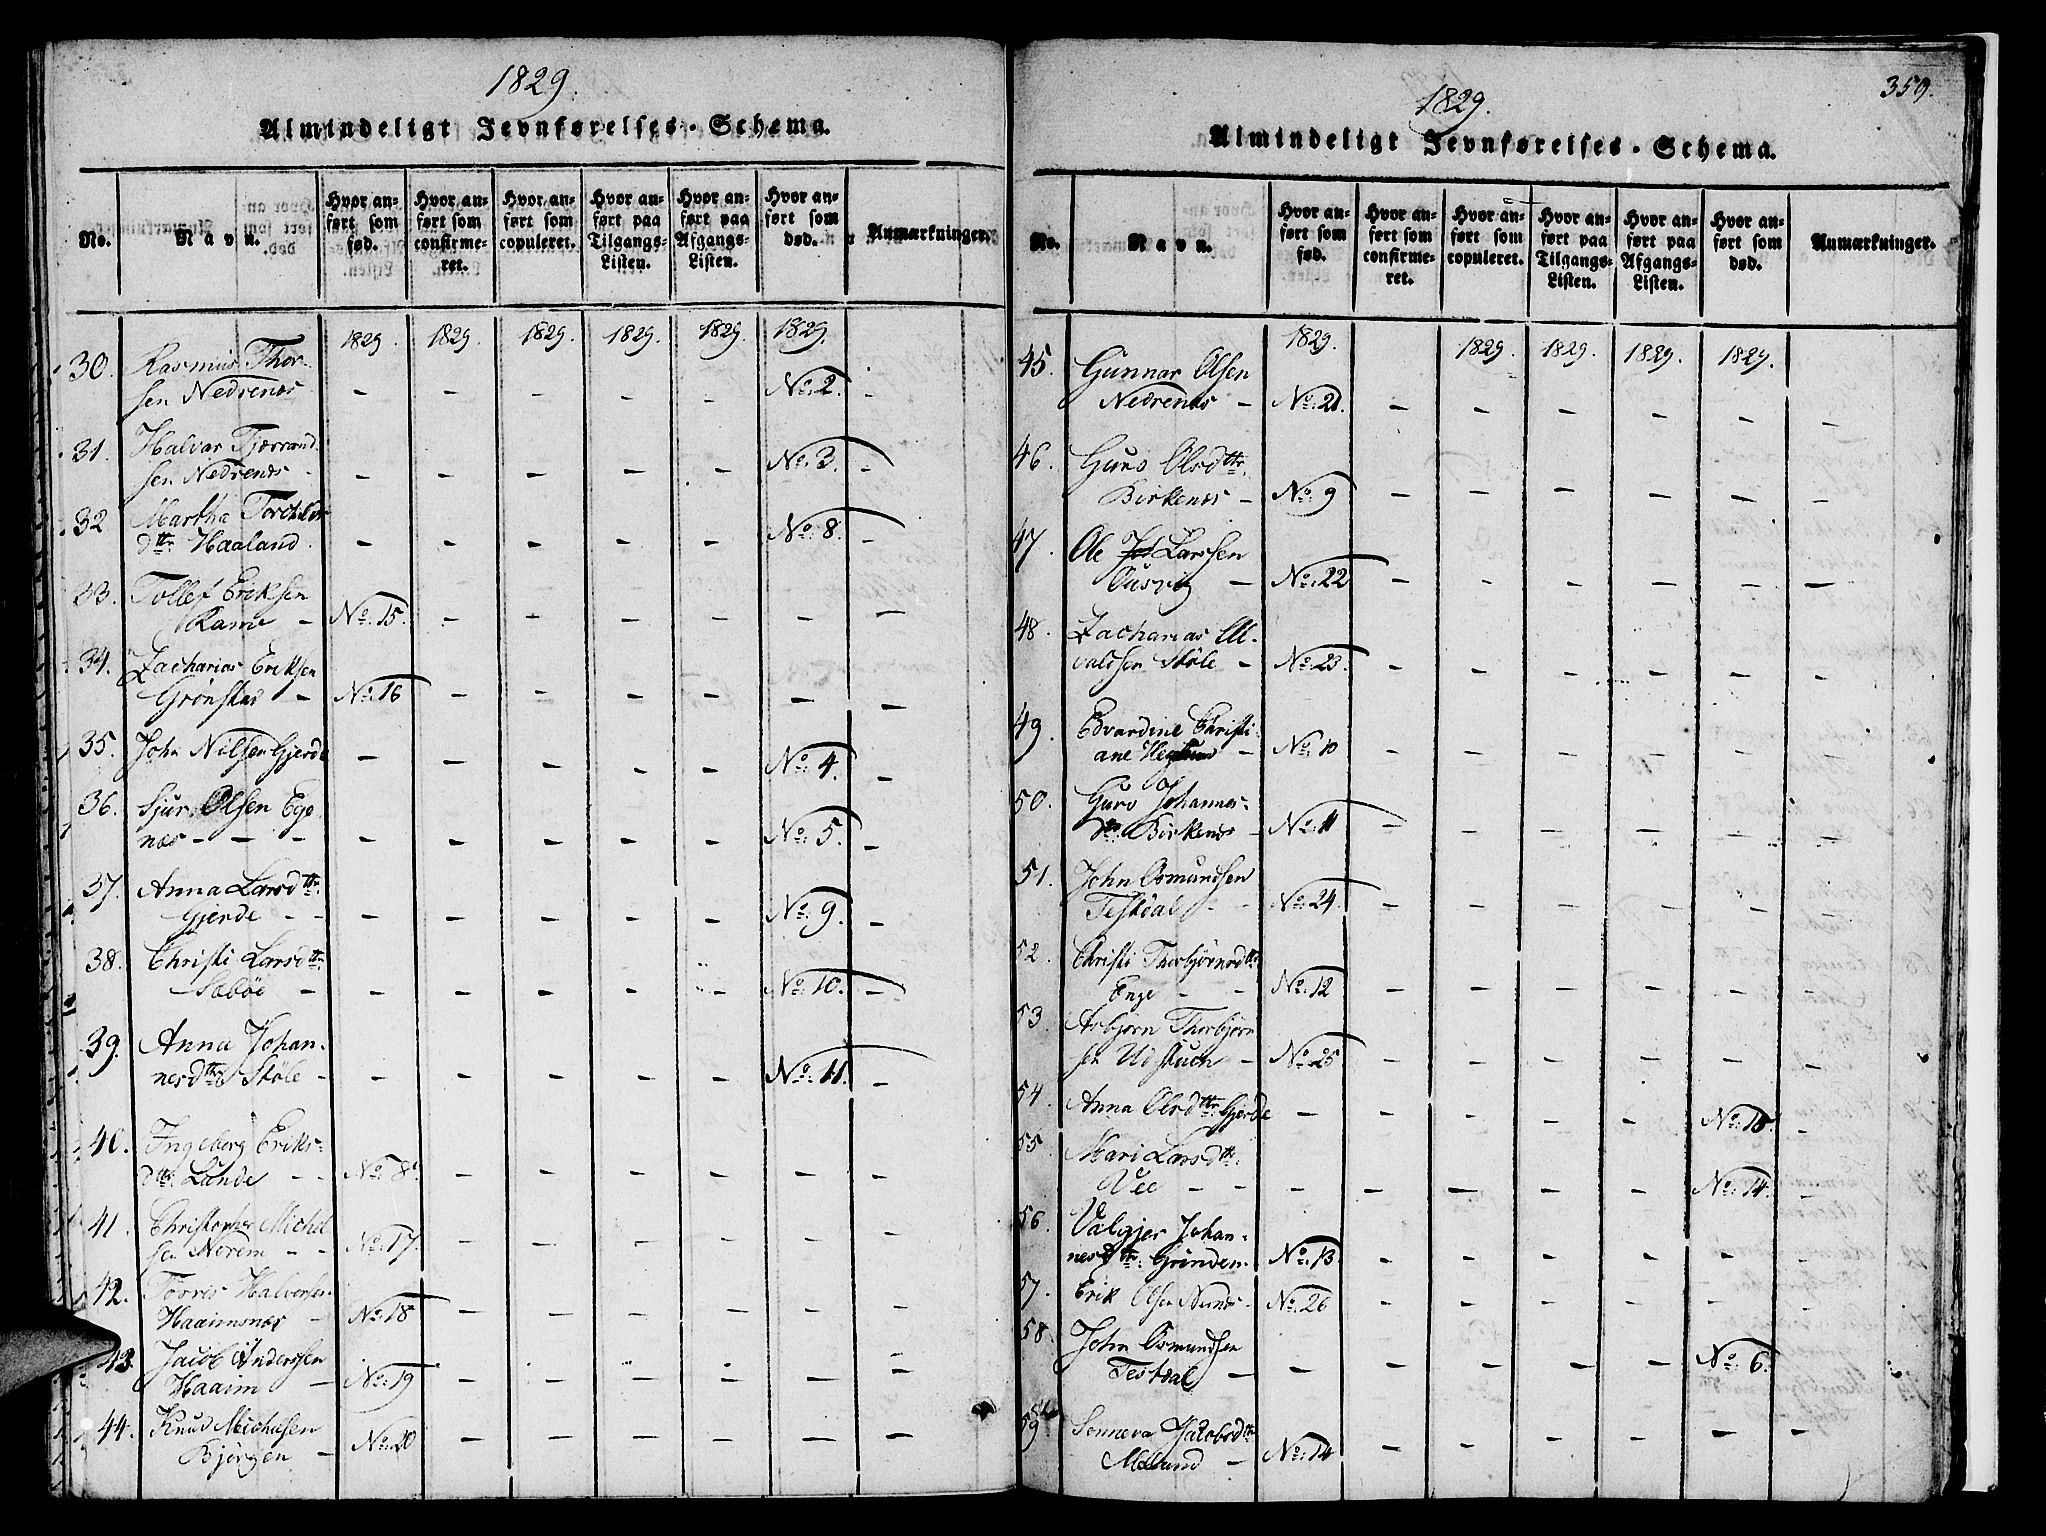 1829.
Almindeligt Jevnførelses-Schema.
No. Navn. Hvor anført som fød. Hvor anført som confirmeret. Hvor anført som copuleret. Hvor anført paa Tilgangs-Listen. Hvor anført paa Afgangs-Listen. Hvor anført som død. Anmærkninger.
1829. 1829. 1829. 1829. 1829. 1829.
30. Rasmus Thor-
sen Nedrenæs – – – – – No. 2. –
31. Halvar Tjerrand
sen Nedrenæs – – – – – No. 3. –
32 Martha Torchilds
dtr. Haaland – – – – – No. 8. –
33. Tollef Eriksen
Ramе – No. 15. – – – – – –
34. Zacharias Eriksen
Grønstad – No. 16 – – – – – –
35. John Nilsen Gjerde – – – – – No. 4. –
36. Sjur Olsen Ege
næs – – – – – – – – No. 5. –
37. Anna Larsdtr.
Gjerde – – – – – – – No. 9. –
38. Christi Larsdtr.
Sæbøe – – – – – – No. 10. –
39. Anna Johan-
nesdtr. Støle – – – – – – No. 11. –
40. Ingeborg Eriks-
dtr. Lunde – – No. 8. – – – – – –
41. Christopher Michel
sen Norem – – No. 17. – – – – – –
42. Torris Halversen
Haaimsnæs – No. 18 – – – – – –
43. Jacob Anderssen
Haaim – No. 19 – – – – – –
44. Knud Michelsen
Bjørgen – No. 20 – – – – – –
359.
1829.
Almindeligt Jevnførelses-Schema.
No. Navn. Hvor anført som fød. Hvor anført som confirmeret. Hvor anført som copuleret. Hvor anført paa Tilgangs-Listen. Hvor anført paa Afgangs-Listen. Hvor anført som død. Anmærkninger.
1829. 1829. 1829. 1829. 1829.
45. Gunnar Olsen
Nedrenæs – No. 21. – – – – – –
46. Guro Olsdtr.
Birkenæs – No. 9 – – – – – –
47. Ole Larssen
Ousvig – No. 22 – – – – – –
48. Zacharias El-
valdsen Støle – No. 23. – – – – – –
49. Edvardine Christi
ane – No. 10 – – – – – –
50. Guro Johannes-
dtr. Birkenæs – No. 11 – – – – – –
51. John Osmundsen
Testdal – – No. 24. – – – – – –
52. Christi Thorbjørnsdtr.
Enge – – No. 12 – – – – – –
53. Asbjørn Thorbjørn
sen Udstuen – No. 25 – – – – – –
54. Anna Olsdtr. Gjerde – – – – – No. 18. –
55. Mari Larsdtr.
Vee – – – – – – – No. 14. –
56. Valgjer Johan-
nesdtr. Grinden. No. 13 – – – – – –
57. Erik Olsen Nernæs. No. 26 – – – – – –
58. John Osmundsen
Testdal – – – – – – No. 6. –
59 Sonneva Jacobsdtr
Mælland – No. 14 – – – – – –